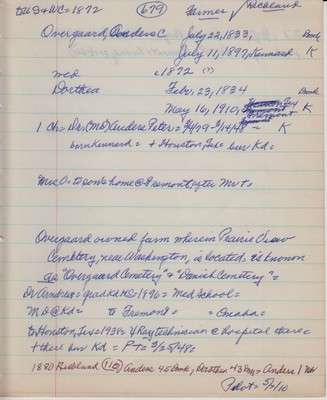 679
Farmer Richland
Overgaard, Anders C July 22, 1833, Denmk
July 11, 1897, Kennard K
wed c1872 (?)
Dorthea Feb. 23, 1834 Denmk
May 16, 1910, Fremont K
1 ch = Dr. (MD) Anders Peter = 3/4/79 - 3/14/48 = K
born Kennard = + Houston, Tex = bur Kd =
Mrs O = to son's home @ Fremont after Mr + =
Overgaard owned farm wherein Prairie View
Cemetery, near Washington, is located, is known
as "Overgaard Cemetery" & "Danish Cemetery" =
Dr Andrew = grad Kd HS = 1896 = Med School =
M.D @ Kd = to Fremont = = Omaha =
to Houston, Tex = 1938 = X Ray technician @ hospital there =
+ there bur Kd = P-T = 3/25/48 =
1880 Richland 110 Anders 45 Denk, Dorothea 43 Den = Anders 1 Neb
Pilot = 5/ /10